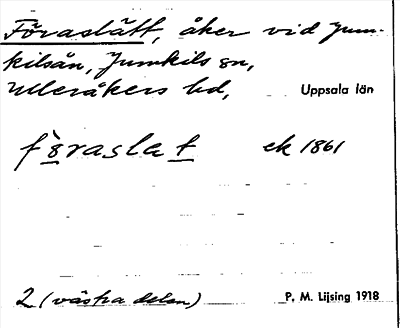 Föraslätt, åker vid Jum-
kilsån, Jumkils sn,
Ulleråkers hd, Uppsala län
fȣraslat ek 1861
2 (västra delen) P. M. Lijsing 1918